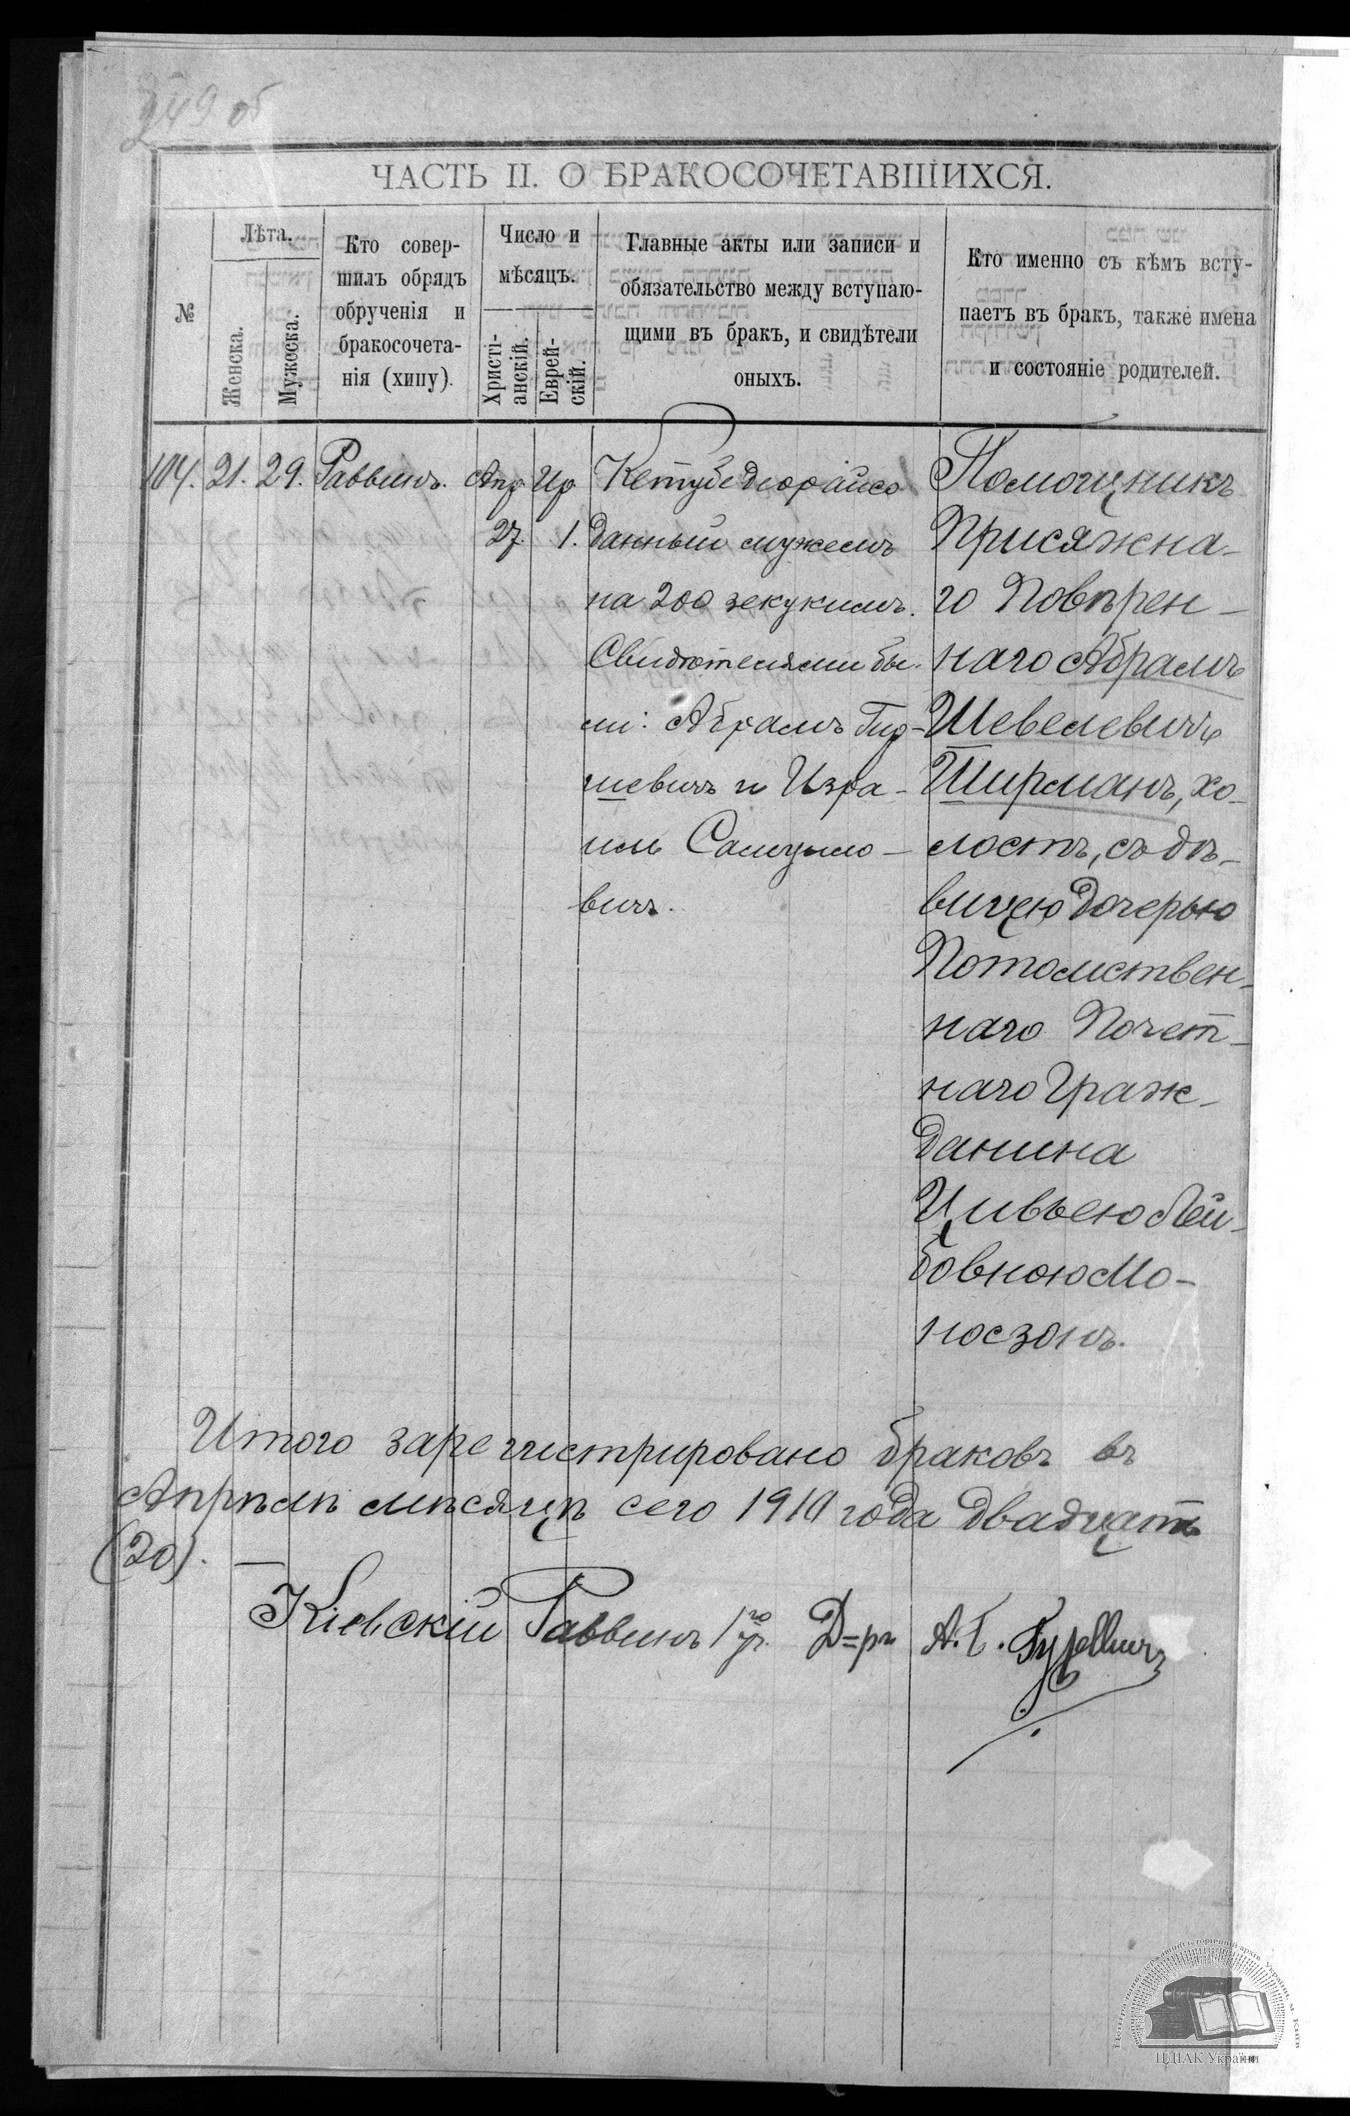 249 об
ЧАСТЬ II. О БРАКОСОЧЕТАВШИХСЯ.
№
Лѣта.
Женска.
Мужеска.
Кто совер-
шилъ обрядъ
обрученія и
бракосочета-
нія (хипу).
Число и
мѣсяцъ.
Христі-
анскій.
Еврей-
скій.
Главные акты или записи и
обязательство между вступаю-
щими въ бракъ, и свидѣтели
оныхъ.
Кто именно съ кѣмъ всту-
паетъ въ бракъ, также имена
и состояніе родителей.
104. 21. 29. Раввинъ. Апр 27. Ир 1.
Кетубе Деорайсо
данный мужемъ
на 200 зекукимъ.
Свидѣтелями бы-
ли: Абрамъ Гир-
шевичъ и Изра-
иль Самуило-
вичъ.
Помощникъ
Присяжна-
го Повѣрен-
наго Абрамъ
Шевелевичъ
Ширманъ, хо-
лостъ, съ дѣ-
вицею дочерью
Потомствен-
наго Почет-
наго Граж-
данина
Цивьею Лей-
бовною Мо-
носзонъ.
Итого зарегистрировано браковъ въ
Апрѣлѣ мѣсяцѣ сего 1910 года двадцать
(20). —
Кіевскій Раввинъ 1го уч. Д=ръ А. Б. Гуревичъ
ЦДІАК України